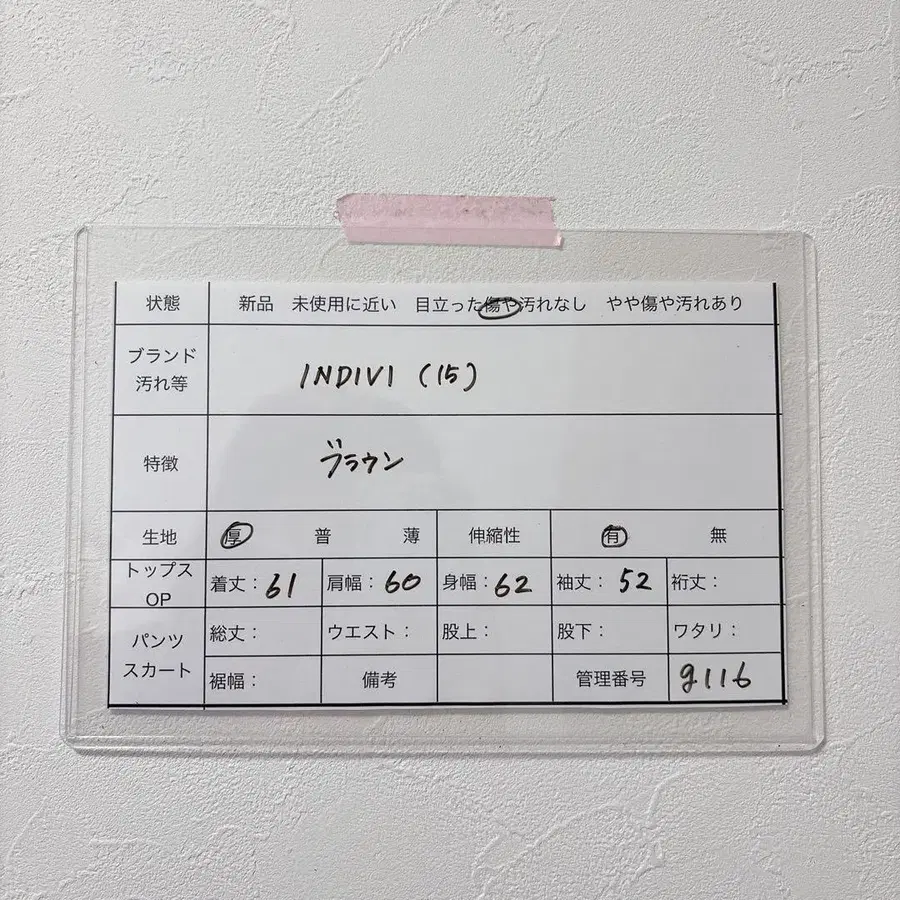 状態 新品 未使用に近い 目立った傷や汚れなし やや傷や汚れあり
ブランド
汚れ等
INDIVI (15)
特徴 ブラウン
生地 厚 普 薄 伸縮性 有 無
トップス
OP
着丈：61 肩幅：60 身幅：62 袖丈：52 裄丈：
パンツ
スカート
総丈： ウエスト： 股上： 股下： ワタリ：
裾幅： 備考 管理番号 g116